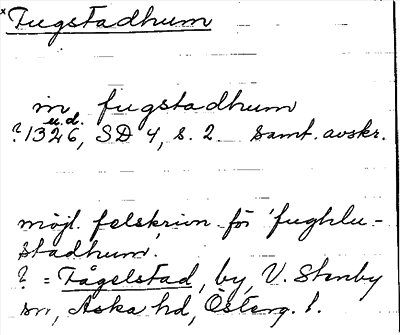 *Fugstadhum
in fugstadhum
u.d.
?1326, SD 4, s. 2 samt. avskr.
möjl. felskrivn. för 'fughlu-
stadhum.'
? = Fågelstad, by, V. Stenby
sn, Aska hd, Österg. l.